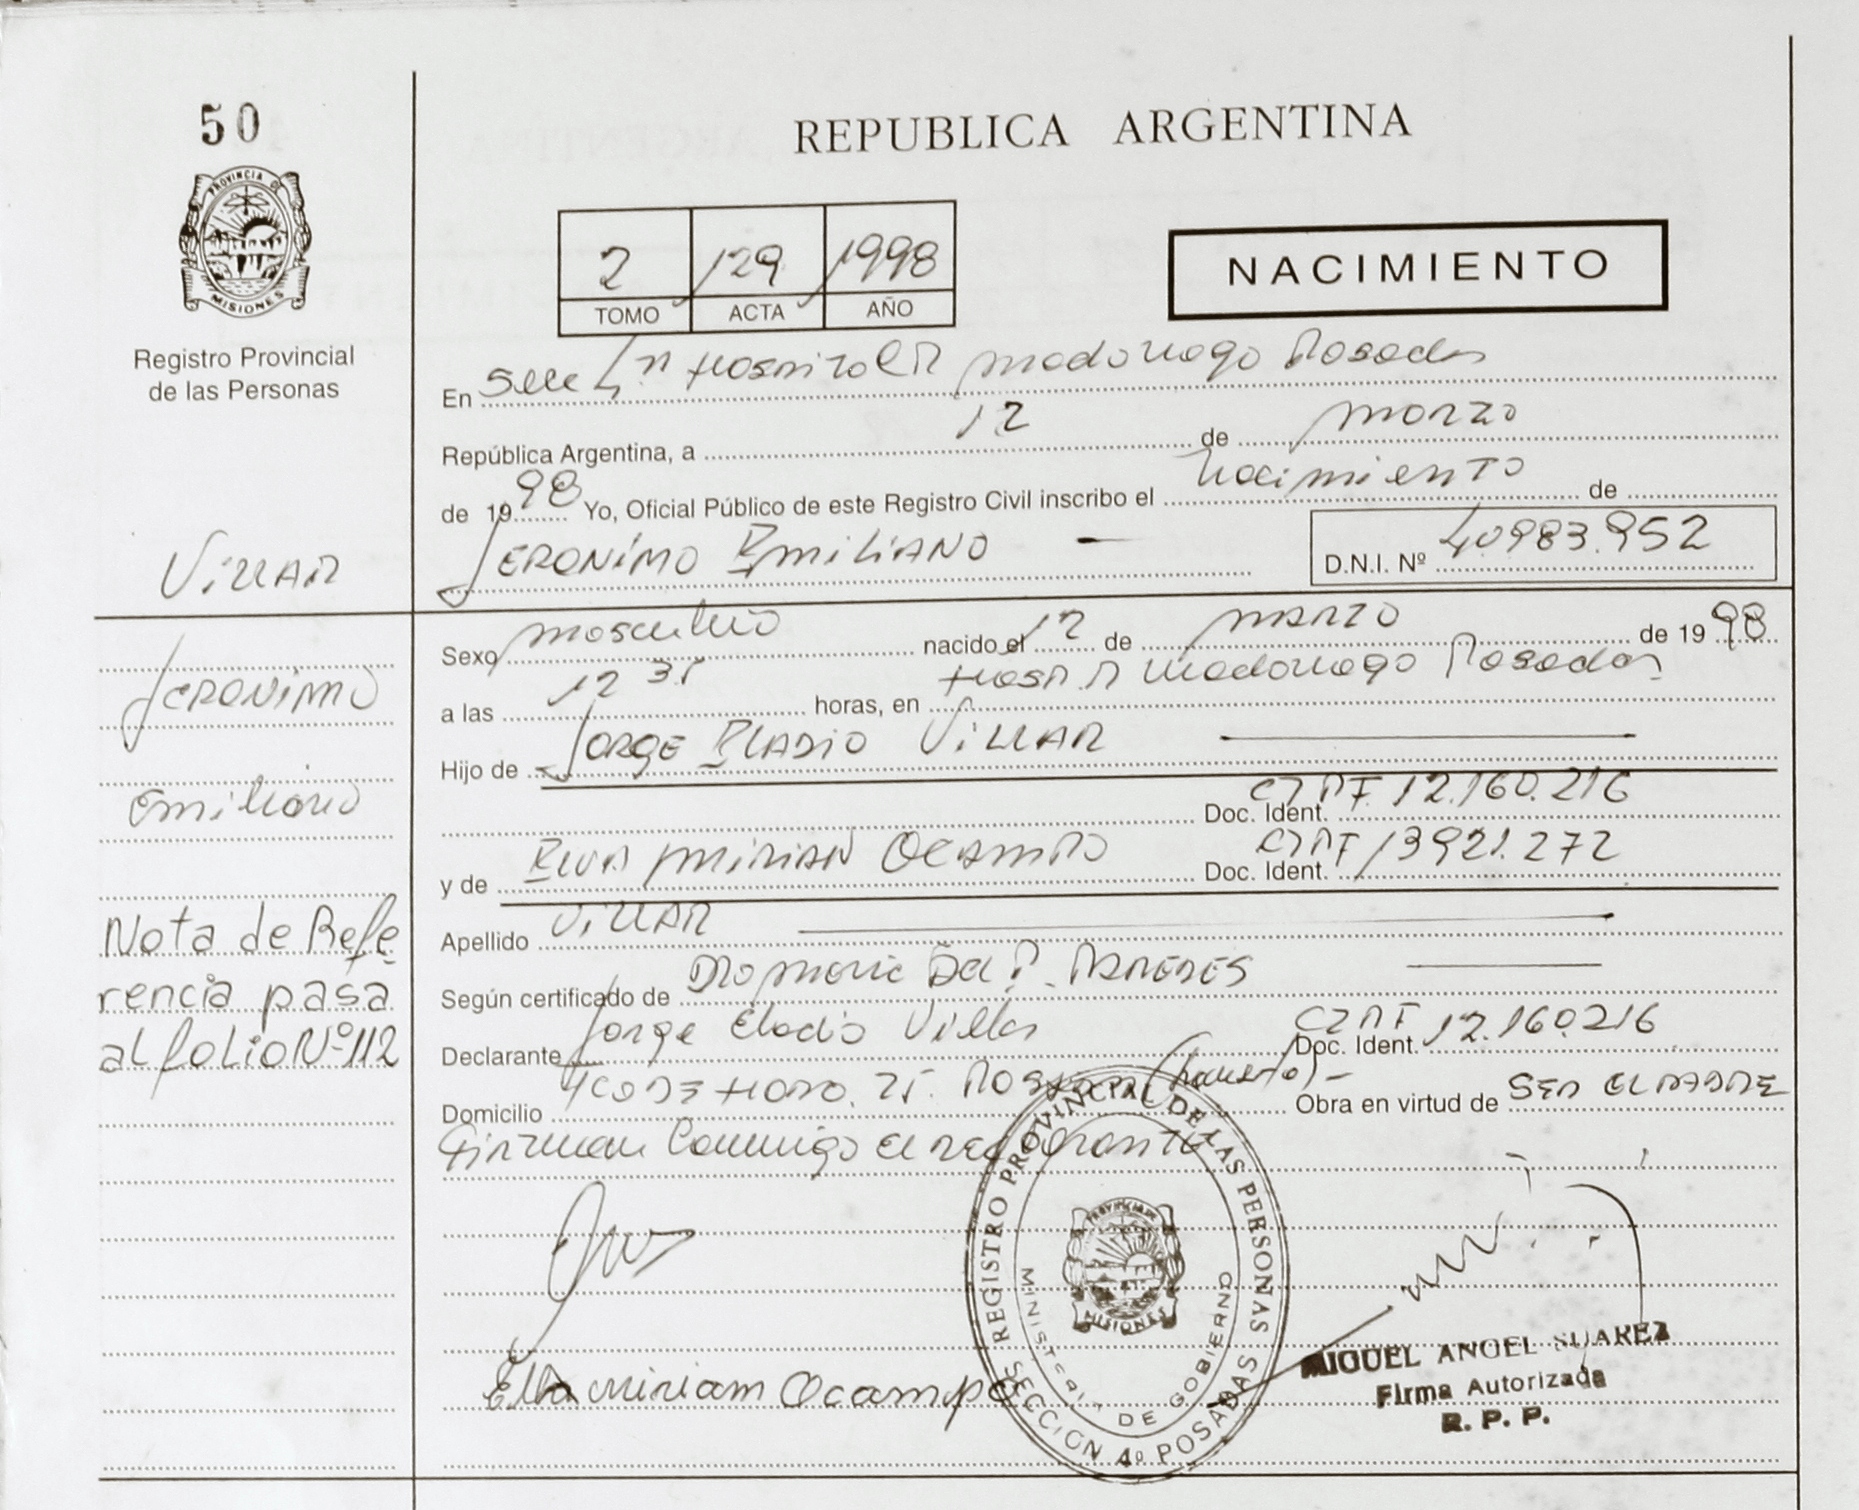 50
REPUBLICA ARGENTINA
PROVINCIA DE
MISIONES
Registro Provincial
de las Personas
2 129 1998
TOMO ACTA AÑO
NACIMIENTO
En Secc 4ª Hospital R Madariaga Posadas
República Argentina, a 12 de marzo
de 1998 Yo, Oficial Público de este Registro Civil inscribo el nacimiento de
JERONIMO EMILIANO —
D.N.I. Nº 40983.952
VILLAR
JERONIMO
Emiliano
Nota de Refe
rencia pasa
al folio Nº 112
Sexo masculino nacido el 12 de MARZO de 1998
a las 12 35 horas, en Hosp. R Madariaga Posadas
Hijo de JORGE ELADIO VILLAR
Doc. Ident. 12.160.216
y de ELVA MIRIAN OCAMPO Doc. Ident. 13921.272
Apellido VILLAR
Según certificado de Del PAREDES
Declarante Jorge Eladio Villar Doc. Ident. 12.160216
Domicilio 25. Obra en virtud de SER EL PADRE
Firman Conmigo el declarante
REGISTRO PROVINCIAL DE LAS PERSONAS
MINISTERIO DE GOBIERNO
PROVINCIA DE
MISIONES
SECCION 4º POSADAS
Elba miriam Ocampo
MIGUEL ANGEL SUAREZ
Firma Autorizada
R. P. P.